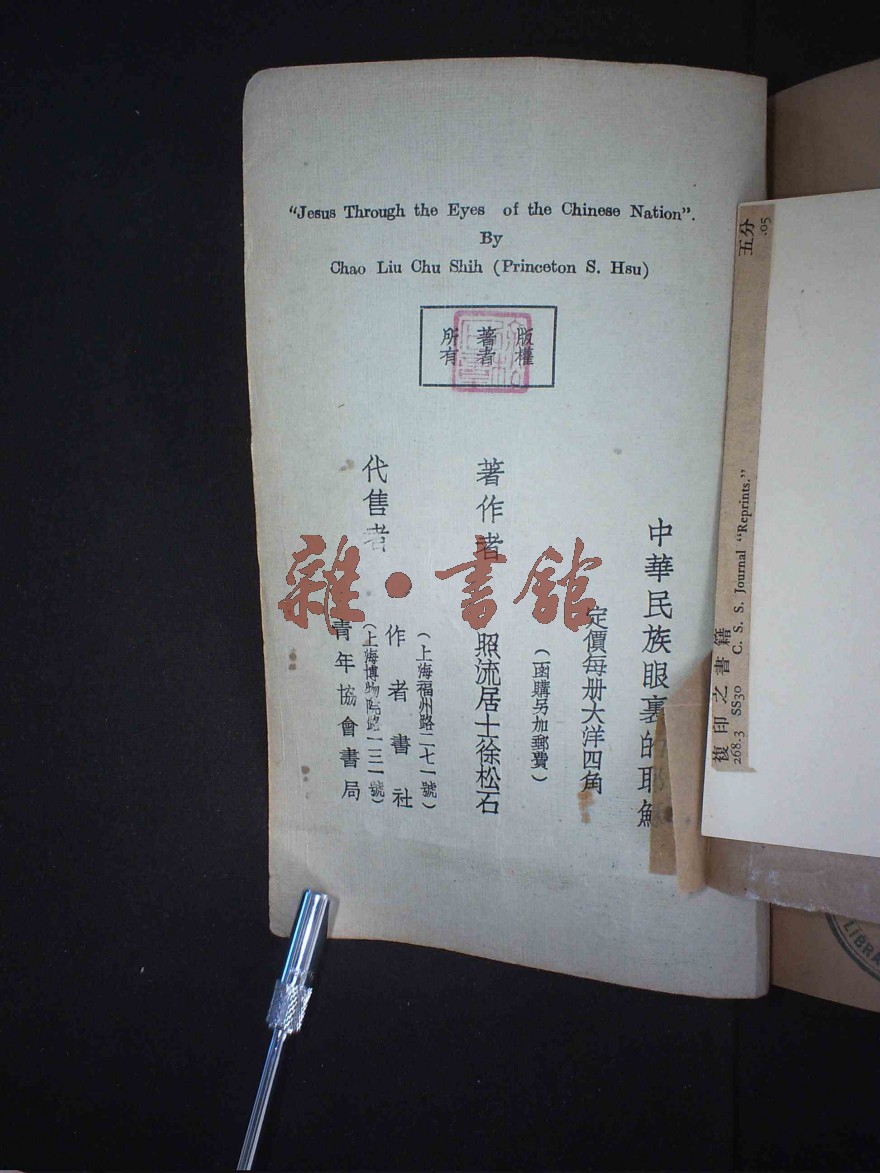 "Jesus Through the Eyes of the Chinese Nation".
By
Chao Liu Chu Shih (Princeton S. Hsu)
版權
著者
所有
中華民族眼裏的耶穌
定價每册大洋四角
(函購另加郵費)
著作者 照流居士徐松石
代售者
(上海福州路二七一號)
作者書社
(上海博物院路一三一號)
青年協會書局
雜·書館
五分
.05
複印之書籍
268.3 SS30 C. S. S. Journal "Reprints."
LIBRA